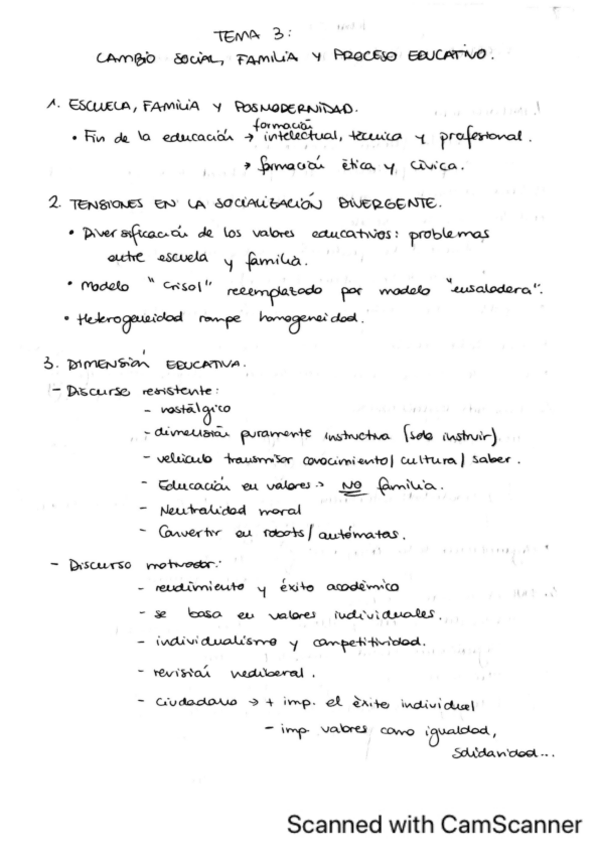 TEMA 3:
CAMBIO SOCIAL, FAMILIA Y PROCESO EDUCATIVO.
1. ESCUELA, FAMILIA Y POSMODERNIDAD.
• Fin de la educación → formación intelectual, técnica y profesional.
→ formación ética y cívica.
2. TENSIONES EN LA SOCIALIZACIÓN DIVERGENTE.
• Diversificación de los valores educativos: problemas
entre escuela y familia.
• Modelo "Crisol" reemplazado por modelo "ensaladera".
• Heterogeneidad rompe homogeneidad.
3. DIMENSIÓN EDUCATIVA.
- Discurso resistente:
- nostálgico
- dimensión puramente instructiva (solo instruir).
- vehículo transmisor conocimiento/ cultura/ saber.
- Educación en valores → NO familia.
- Neutralidad moral
- Convertir en robots/ autómatas.
- Discurso motivador:
- rendimiento y éxito académico
- se basa en valores individuales.
- individualismo y competitividad.
- revisión neoliberal.
- Ciudadano → + imp. el éxito individual
- imp. valores como igualdad,
solidaridad...
Scanned with CamScanner